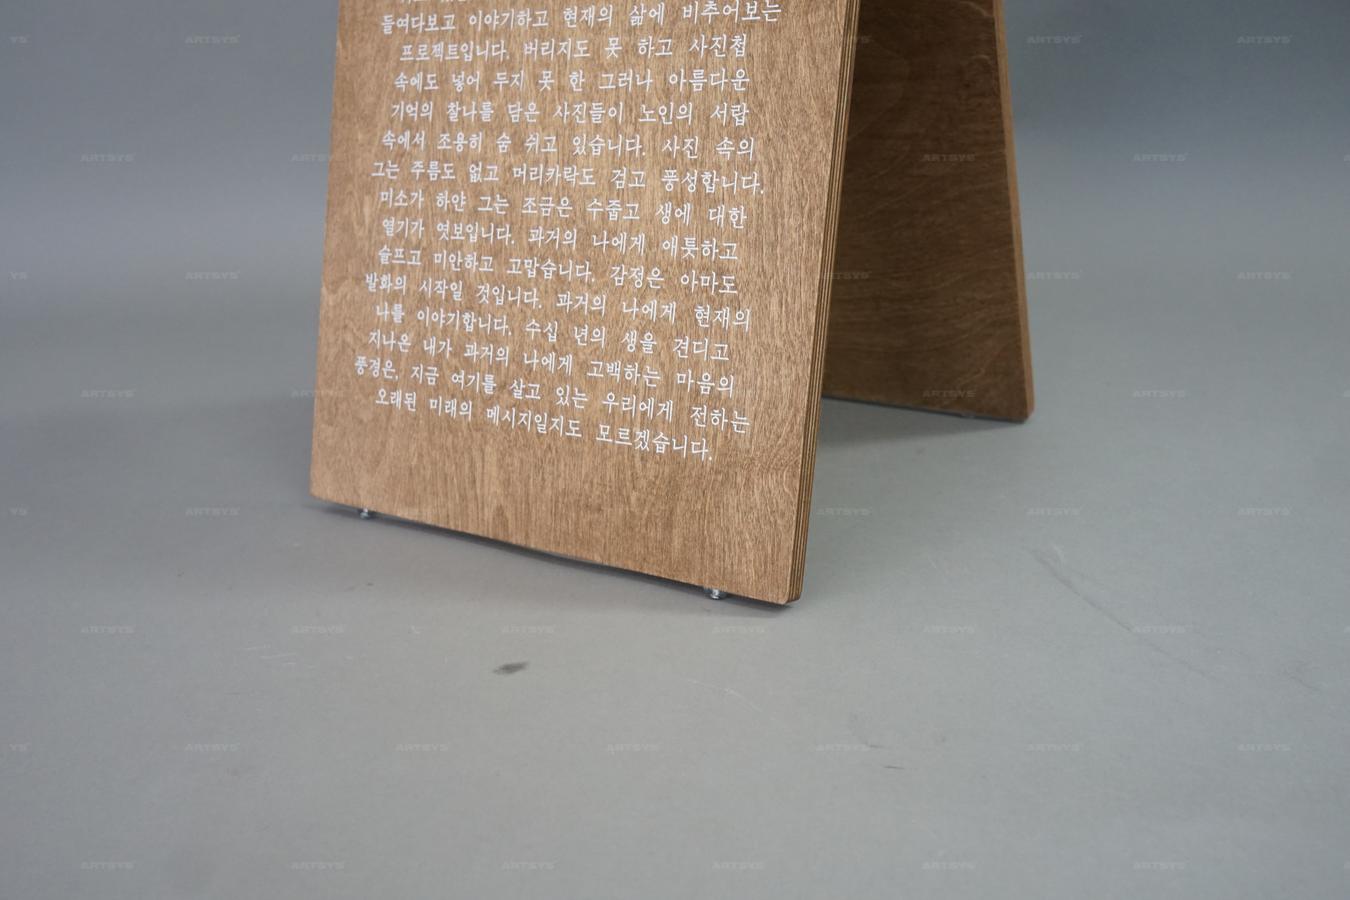 들여다보고 이야기하고 현재의 삶에 비추어보는
프로젝트입니다. 버리지도 못 하고 사진첩
속에도 넣어 두지 못 한 그러나 아름다운
기억의 찰나를 담은 사진들이 노인의 서랍
속에서 조용히 숨 쉬고 있습니다. 사진 속의
그는 주름도 없고 머리카락도 검고 풍성합니다.
미소가 하얀 그는 조금은 수줍고 생에 대한
열기가 엿보입니다. 과거의 나에게 애틋하고
슬프고 미안하고 고맙습니다. 감정은 아마도
발화의 시작일 것입니다. 과거의 나에게 현재의
나를 이야기합니다. 수십 년의 생을 견디고
지나온 내가 과거의 나에게 고백하는 마음의
풍경은, 지금 여기를 살고 있는 우리에게 전하는
오래된 미래의 메시지일지도 모르겠습니다.
ARTSYS